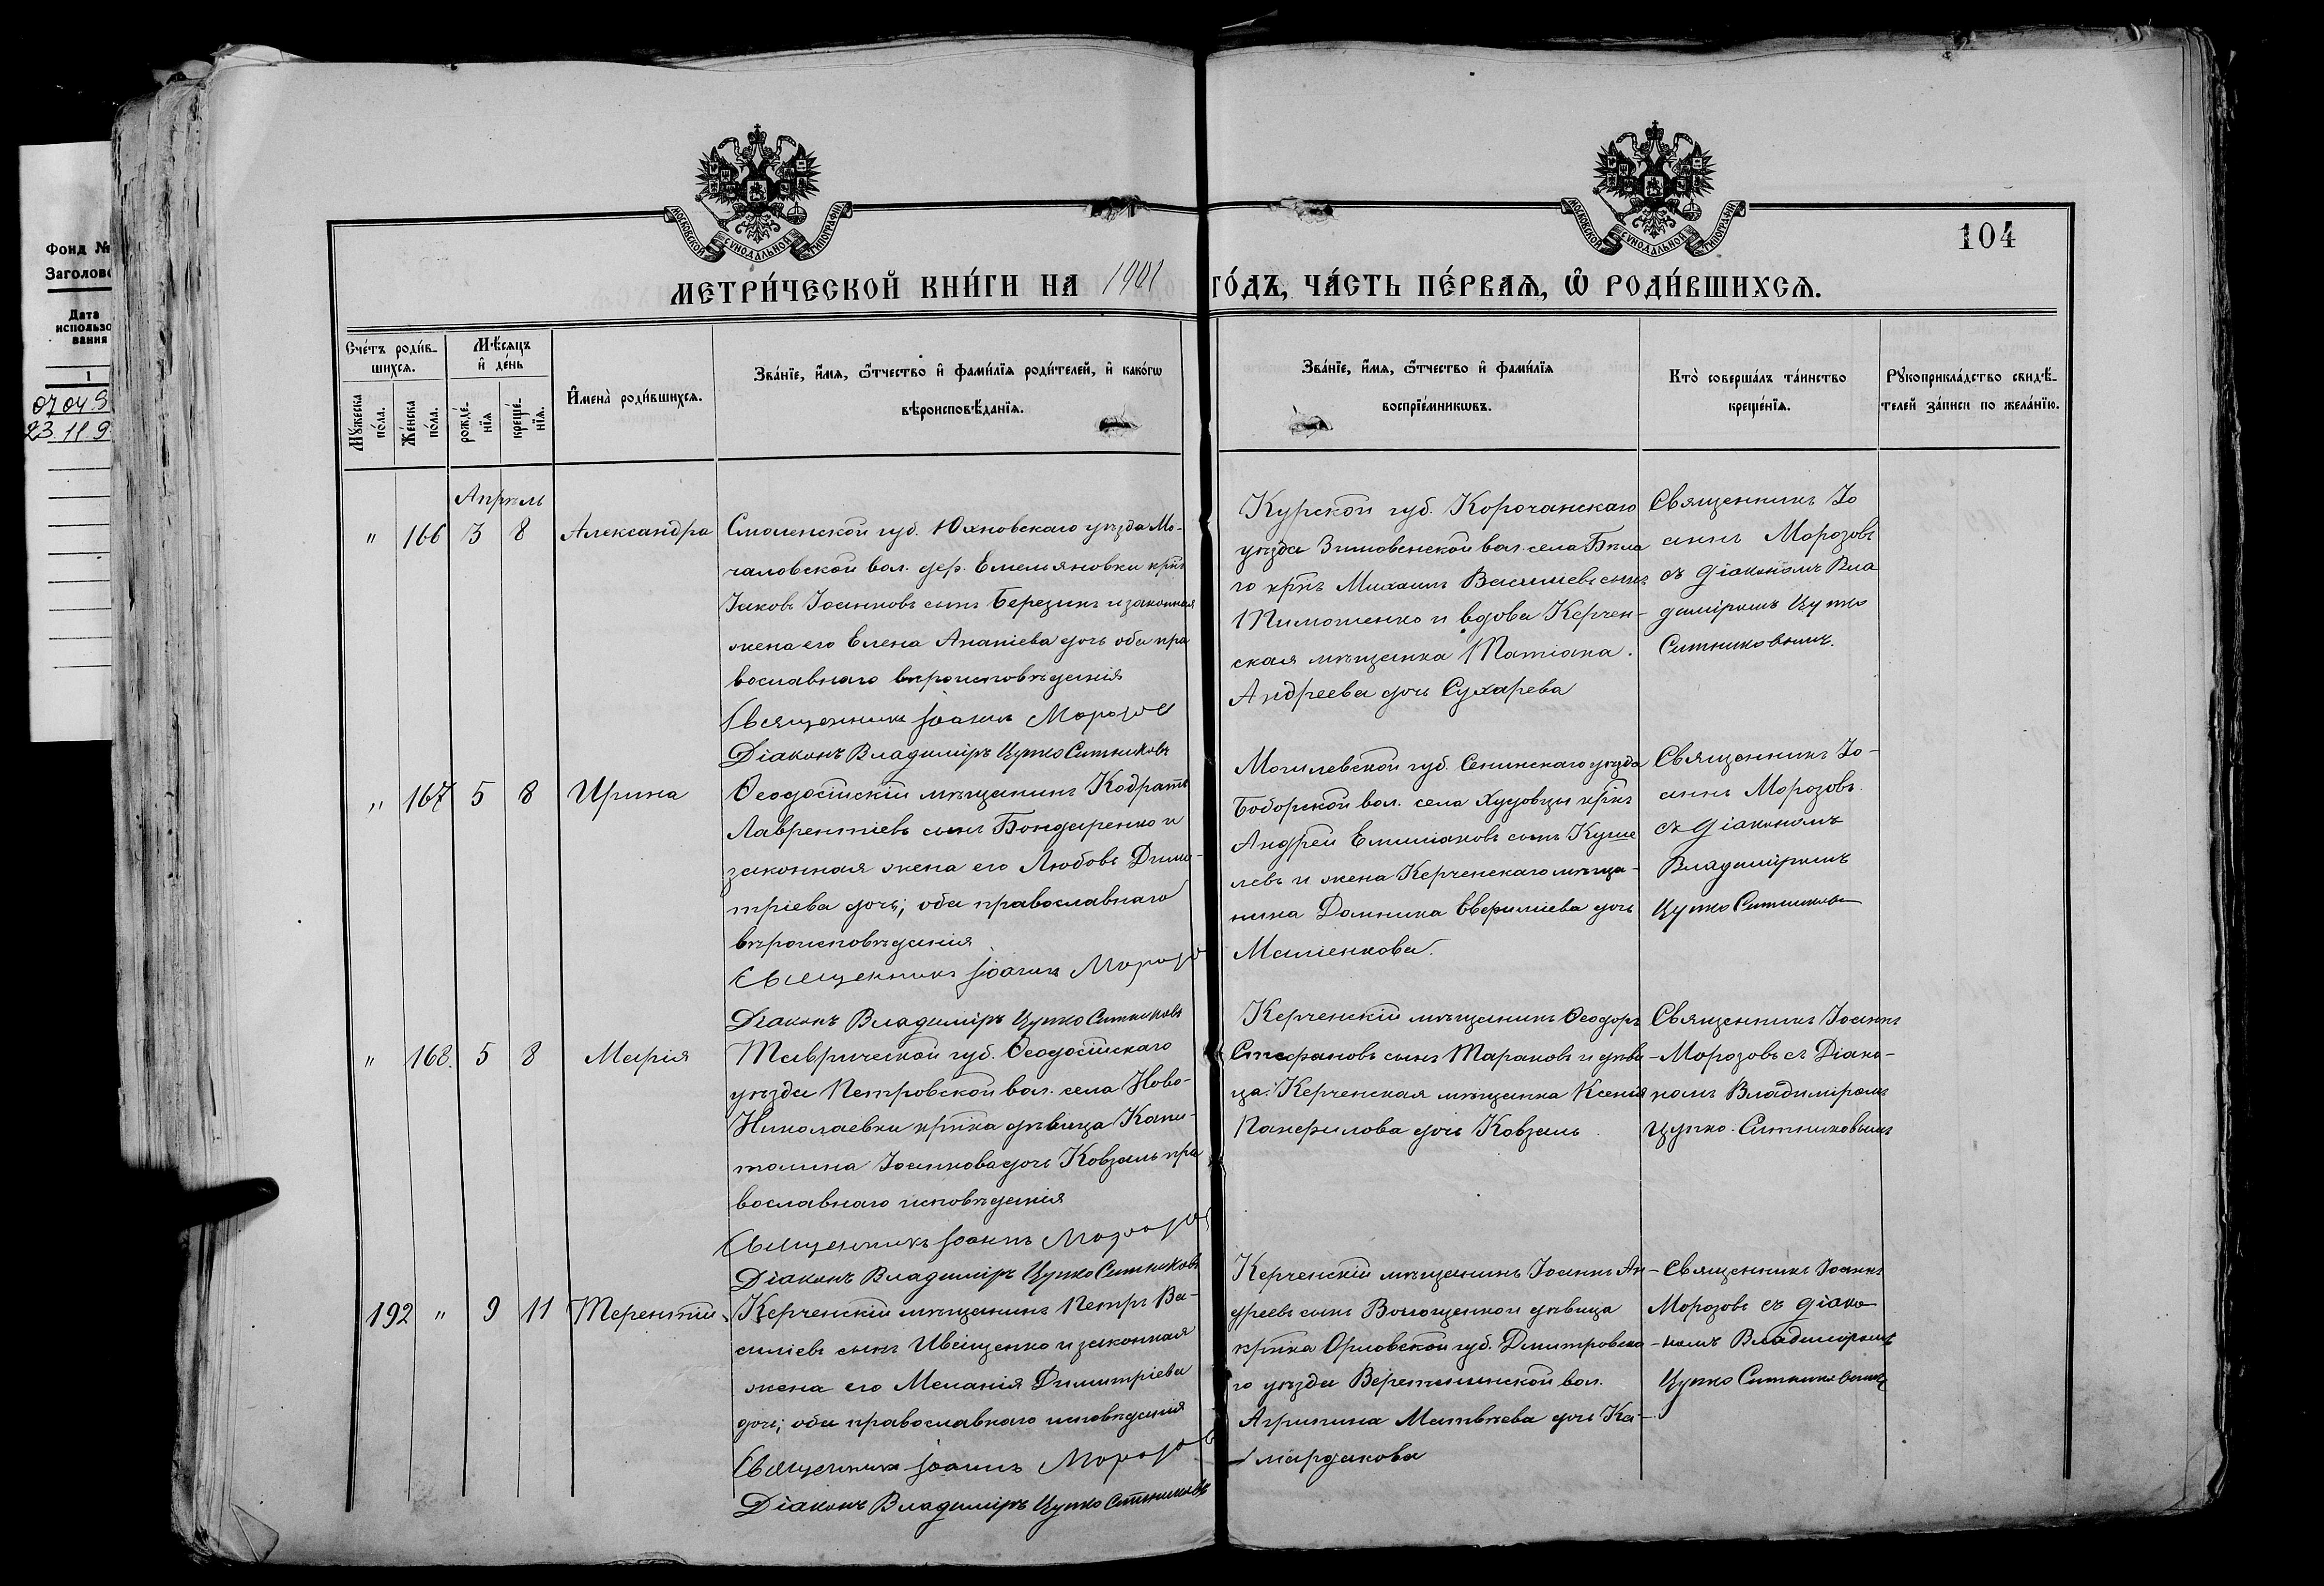 Фонд №
Заголово
Дата
использо
вания
1
07 04 9
23 11 9
МОСКОВСКОЙ СѴНОДАЛЬНОЙ ТИПОГРАФІИ
МОСКОВСКОЙ СѴНОДАЛЬНОЙ ТИПОГРАФІИ
104
МЕТРИ́ЧЕСКОЙ КНИ́ГИ НА 1901 ГО́ДЪ, ЧА́СТЬ ПЕ́РВАѦ, Ѡ҆ РОДИ́ВШИХСѦ.
Сче́тъ роди́в-
шихсѧ.
Мѣ́сѧцъ
и҆ де́нь
Мꙋ́жеска
по́ла.
Же́нска
по́ла.
рожде́-
нїѧ
креще́-
нїѧ.
И҆мена̀ роди́вшихсѧ.
Зва́нїе, и҆́мѧ, ѻ҆́тчество и҆ фами́лїѧ роди́телей, и҆ како́гѡ
вѣроисповѣ́данїѧ.
Зва́нїе, и҆́мѧ, ѻ҆́тчество и҆ фами́лїѧ
воспрїе́мникѡвъ.
Кто̀ соверша́лъ та́инство
креще́нїѧ.
Рꙋкоприкла́дство свидѣ́-
телей за́писи по жела́нїю.
Апрѣль
" 166 3 8 Александра
Смоленской губ. Юхновскаго уѣзда Мо-
чаловской вол. дер. Емельяновки крнъ
Іаковъ Іоанновъ сынъ Березинъ и законная
жена его Елена Ананіева дочь оба пра
вославнаго вѣроисповѣданія
Священникъ Іоаннъ Морозов
Діаконъ Владиміръ Цупко Ситниковъ
Курской губ. Корочанскаго
уѣзда Зимовенской вол. села Бѣла
го крнъ Михаилъ Васильевъ сынъ
Тимошенко и вдова Керчен-
ская мѣщанка Татіана
Андреева дочь Сухарева
Священникъ Іо
аннъ Морозовъ
съ діакономъ Вла
диміромъ Цупко
Ситниковымъ.
" 167 5 8 Ирина
Ѳеодосійскій мѣщанинъ Кодратъ
Лаврентіевъ сынъ Бондаренко и
законная жена его Любовь Дими-
тріева дочь; оба православнаго
вѣроисповѣданія
Священникъ Іоаннъ Морозо
Діаконъ Владиміръ Цупко Ситниковъ
Могилевской губ. Сенинскаго уѣзда
Боборской вол. села Худовцы крнъ
Андрей Емиліановъ сынъ Куше
левъ и жена Керченскаго мѣща-
нина Домника Евфиміева дочь
Маліенкова.
Священникъ Іо-
аннъ Морозовъ
съ діакономъ
Владиміромъ
Цупко Ситников
" 168. 5 8 Марія
Таврической губ. Ѳеодосійскаго
уѣзда Петровской вол. села Ново-
Николаевки крнка дѣвица Капи-
толина Іоаннова дочь Ковзаль пра
вославнаго исповѣданія
Священникъ Іоаннъ Морозов
Діаконъ Владиміръ Цупко Ситниковъ
Керченскій мѣщанинъ Ѳеодоръ
Стефановъ сынъ Тарановъ и дѣви-
ца Керченская мѣщанка Ксенія
Панфилова дочь Ковзаль
Священникъ Іоаннъ
Морозовъ съ Діако-
номъ Владиміромъ
Цупко-Ситниковымъ
192 " 9 11 Терентій
Керченскій мѣщанинъ Петръ Ва-
силіевъ сынъ Иващенко и законная
жена его Меланія Димитріева
дочь; оба православнаго исповѣданія
Священникъ Іоаннъ Морозов
Діаконъ Владиміръ Цупко Ситниковъ
Керченскій мѣщанинъ Іоаннъ Ан-
дреевъ сынъ Волощенко и дѣвица
крнка Орловской губ. Дмитровска-
го уѣзда Веретенинской вол.
Агрипина Матвѣева дочь Ка-
мардакова
Священникъ Іоаннъ
Морозовъ съ діако
номъ Владиміромъ
Цупко Ситниковымъ